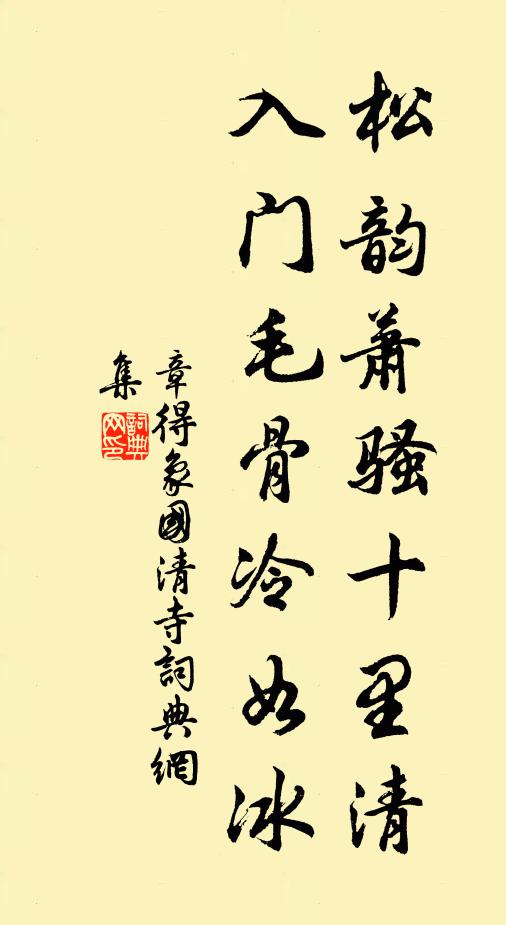 松韵蕭骚十里清
入门毛骨冷如冰
章得象國清寺詞典網
集
詞典
网印